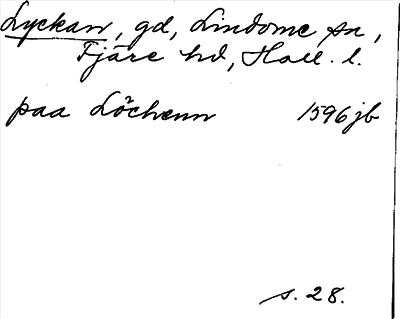 Lyckan, gd, Lindome sn,
Fjäre hd, Hall. l.
paa Löckenn 1596 jb
s. 28.